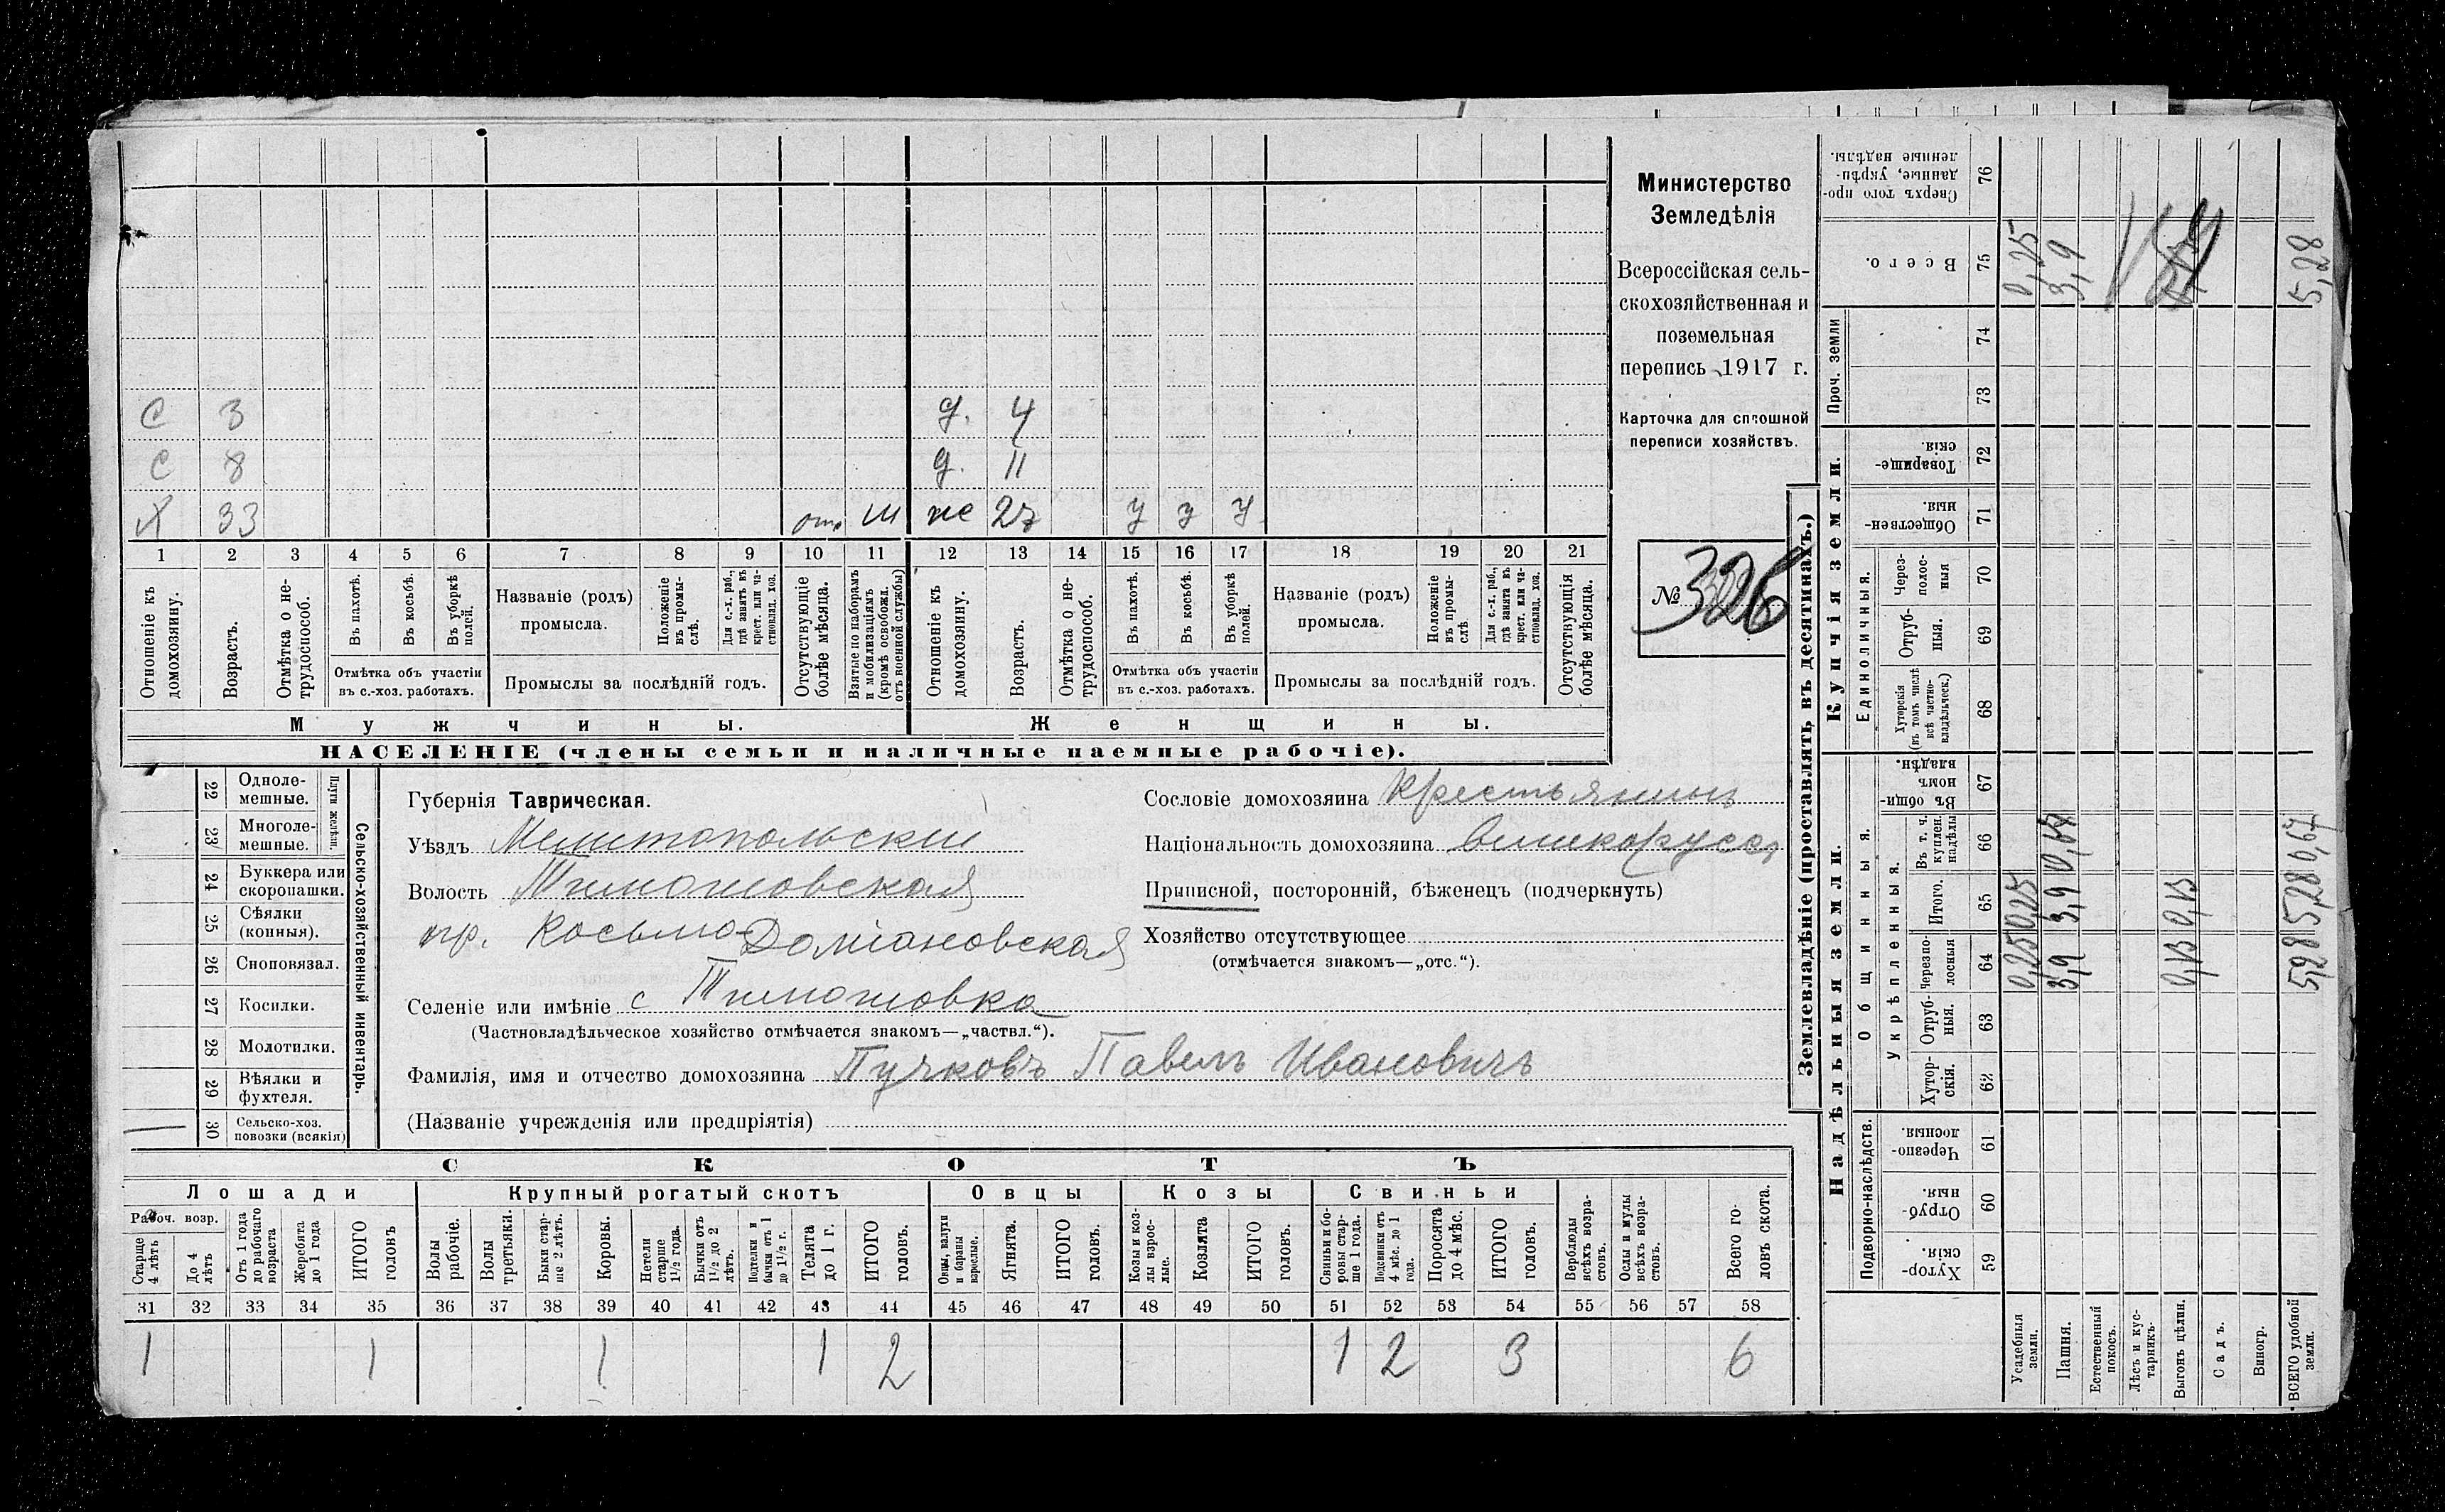 С 3 д. 4
С 8 д. 11
Х 33 отс м же 27 у у у
1 2 3 4 5 6 7 8 9 10 11 12 13 14 15 16 17 18 19 20 21
Отношеніе къ домохозяину.
Возрастъ.
Отмѣтка о нетрудоспособ.
Въ пахотѣ.
Въ косьбѣ.
Въ уборкѣ полей.
Отмѣтка объ участіи въ с.-хоз. работахъ.
Названіе (родъ) промысла.
Положеніе въ промыслѣ.
Для с.-х. раб., гдѣ занятъ въ крест. или частновлад. хоз.
Промыслы за послѣдній годъ.
Отсутствующіе болѣе мѣсяца.
Взятые по наборамъ и мобилизаціямъ (кромѣ освобожд. отъ военной службы)
Отношеніе къ домохозяину.
Возрастъ.
Отмѣтка о нетрудоспособ.
Въ пахотѣ.
Въ косьбѣ.
Въ уборкѣ полей.
Отмѣтка объ участіи въ с.-хоз. работахъ.
Названіе (родъ) промысла.
Положеніе въ промыслѣ
Для с.-х. раб., гдѣ занята въ крест. или частновлад. хоз.
Промыслы за послѣдній годъ.
Отсутствующія болѣе мѣсяца.
Мужчины.
Женщины.
НАСЕЛЕНІЕ (члены семьи и наличные наемные рабочіе).
Министерство
Земледѣлія
Всероссійская сель-
скохозяйственная и
поземельная
перепись 1917 г.
Карточка для сплошной
переписи хозяйствъ.
№ 326
22 Одноле-
мешные.
23 Многоле-
мешные.
Плуги желѣзн.
24 Буккера или
скоропашки.
25 Сѣялки
(конныя).
26 Сноповязал.
27 Косилки.
28 Молотилки.
29 Вѣялки и
фухтеля.
30 Сельско-хоз.
повозки (всякія)
Сельско-хозяйственный инвентарь.
Губернія Таврическая.
Уѣздъ Мелитопольскій
Волость Тимошовская
пр. Косьмо-Даміановская
Селеніе или имѣніе с Тимошовка
(Частновладѣльческое хозяйство отмѣчается знакомъ—„частвл.“).
Фамилія, имя и отчество домохозяина Пучковъ Павелъ Ивановичъ
(Названіе учрежденія или предпріятія)
Сословіе домохозяина Крестьянинъ
Національность домохозяина великорусс.
Приписной, посторонній, бѣженецъ (подчеркнуть)
Хозяйство отсутствующее
(отмѣчается знакомъ—„отс.“).
СКОТЪ
Лошади
Крупный рогатый скотъ
Овцы
Козы
Свиньи
Рабоч. возр.
Старше 4 лѣтъ
До 4 лѣтъ
Отъ 1 года до рабочаго возраста
Жеребята до 1 года
ИТОГО головъ
Волы рабочіе.
Волы третьяки.
Быки старше 2 лѣтъ.
Коровы.
Нетели старше 1 1/2 года.
Бычки отъ 1 1/2 до 2 лѣтъ.
Подтелки и бычки отъ 1 до 1 1/2 г.
Телята до 1 г.
ИТОГО головъ.
Овцы, валухи и бараны взрослые.
Ягнята.
ИТОГО головъ.
Козы и козлы взрослые.
Козлята
ИТОГО головъ.
Свиньи и боровы старше 1 года.
Подсвинки отъ 4 мѣс. до 1 года.
Поросята до 4 мѣс.
ИТОГО головъ.
Верблюды всѣхъ возрастовъ.
Ослы и мулы всѣхъ возрастовъ.
Всего головъ скота.
31 32 33 34 35 36 37 38 39 40 41 42 43 44 45 46 47 48 49 50 51 52 53 54 55 56 57 58
1 1 1 1 2 1 2 3 6
Землевладѣніе (проставлять въ десятинахъ.)
Надѣльныя земли.
Купчія земли.
Проч. земли
Подворно-наслѣдств.
Общинныя.
Укрѣпленныя.
Единоличныя.
Хуторскія. 59
Отрубныя. 60
Черезполосныя. 61
Хуторскія. 62
Отрубныя. 63
Черезполосныя 64
Итого. 65
Въ т. ч. куплен. надѣлы 66
Въ общиномъ владѣн. 67
Хуторскія (въ томъ числѣ всѣ частновладѣльческ.) 68
Отрубныя. 69
Черезполосныя 70
Общественныя. 71
Товарищескія. 72
73
74
Всего. 75
Сверхъ того проданные, укрѣпленные надѣлы. 76
Усадебныя земли. 0,25 0,25 0,25
Пашня. 3,9 3,9 0,67 3,9
Естественный покосъ.
Лѣсъ и кустарникъ.
Выгонъ цѣлин. 0,13 0,13
Садъ.
Виногр.
ВСЕГО удобной земли. 5,28 5,28 0,67 5,28